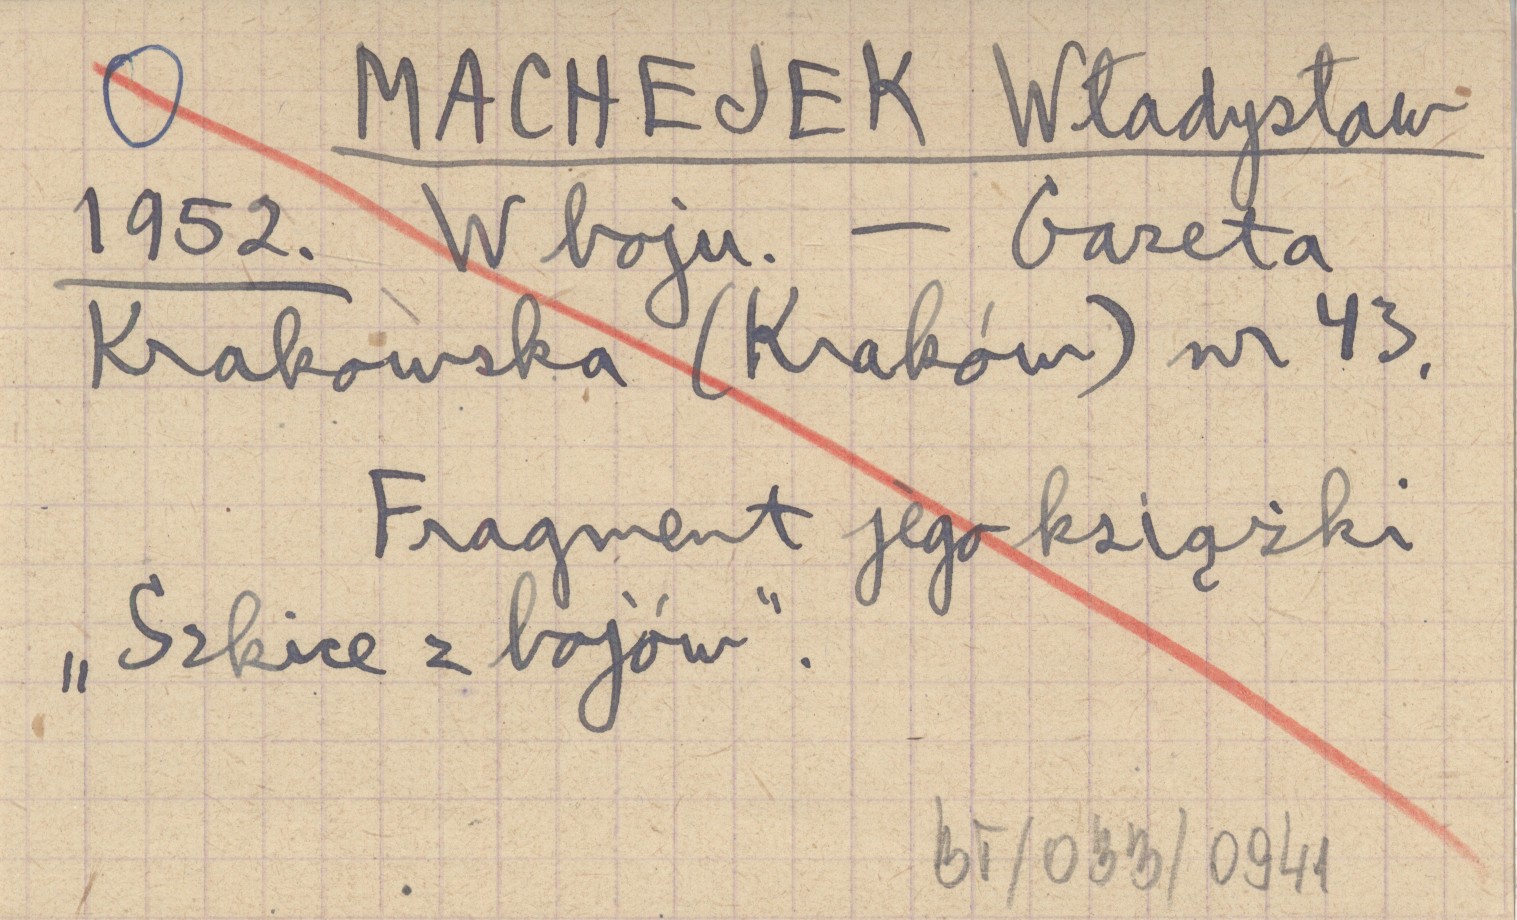 MACHEJEK Władysław
1952. W boju. — Gazeta
Krakowska (Kraków) nr 43.
Fragment jego książki
„Szkice z bojów".
BT/033/0941